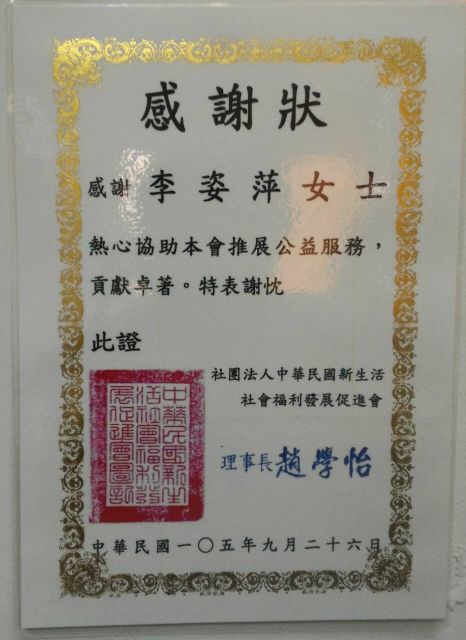 感謝狀
感謝 李姿萍女士
熱心協助本會推展公益服務，
貢獻卓著。特表謝忱
此證
社團法人中華民國新生活
社會福利發展促進會
理事長 趙學怡
中華民國新生
活社會福利發
展促進會圖記
中華民國一〇五年九月二十六日